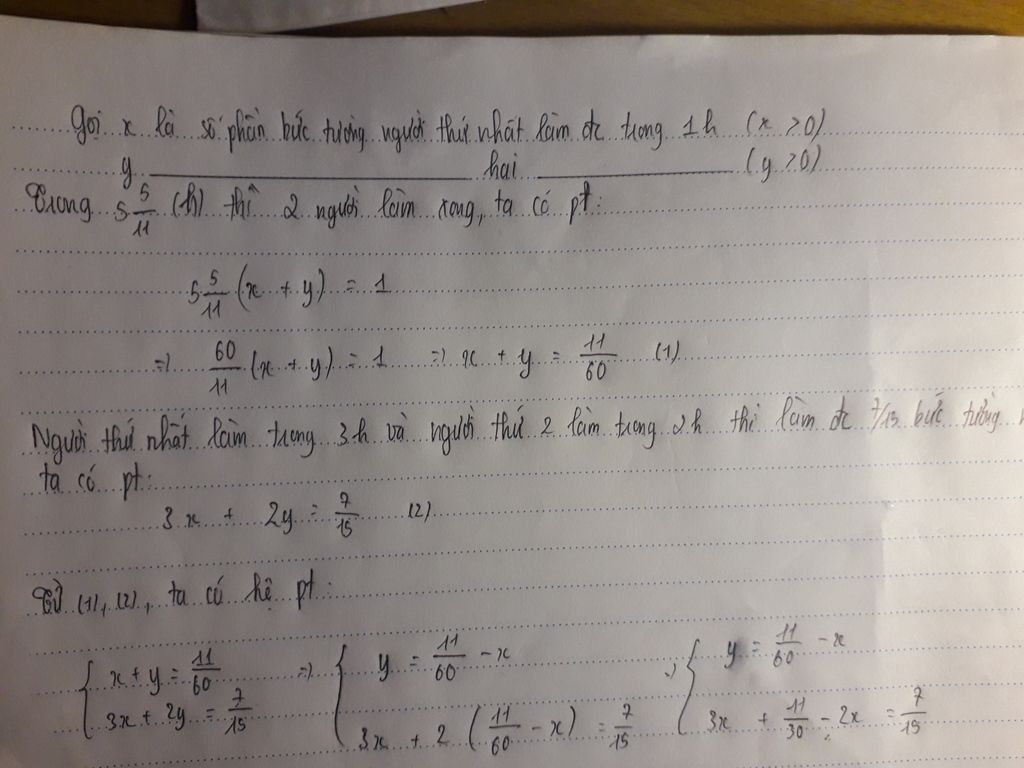 Gọi x là số phần bức tường người thứ nhất làm đc trong 1h (x > 0)
y ____________ hai ____________ (y > 0)
Trong 5 5/11 (h) thì 2 người làm xong, ta có pt:
5 5/11 (x + y) = 1
=> 60/11 (x + y) = 1 => x + y = 11/60 (1)
Người thứ nhất làm trong 3h và người thứ 2 làm trong 2h thì làm đc 7/15 bức tường
ta có pt:
3x + 2y = 7/15 (2)
Từ (1), (2), ta có hệ pt:
{ x + y = 11/60 => { y = 11/60 - x { y = 11/60 - x
3x + 2y = 7/15 3x + 2 (11/60 - x) = 7/15 3x + 11/30 - 2x = 7/15